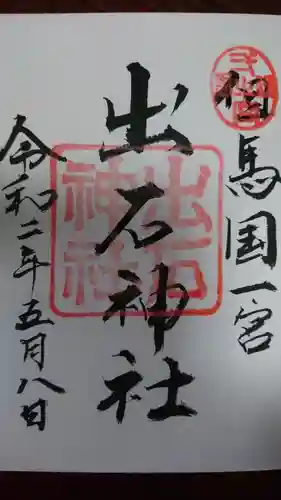 但馬国一宮
出石神社
出石
神社
令和二年五月八日